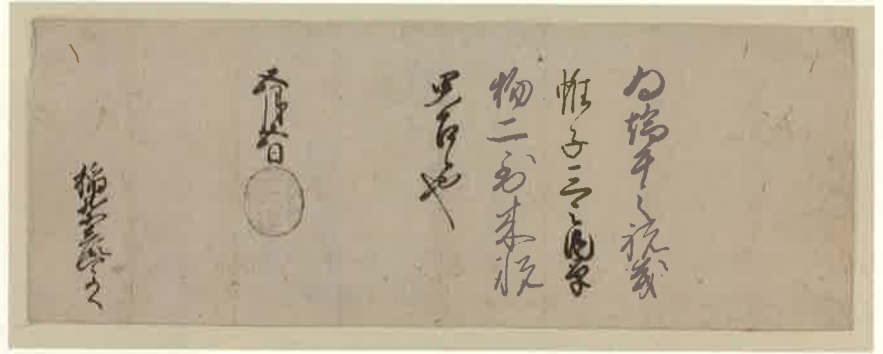 為端午之祝儀
帷子三之内単
物二到来悦
思召也
五月 日
稲葉 とのへ